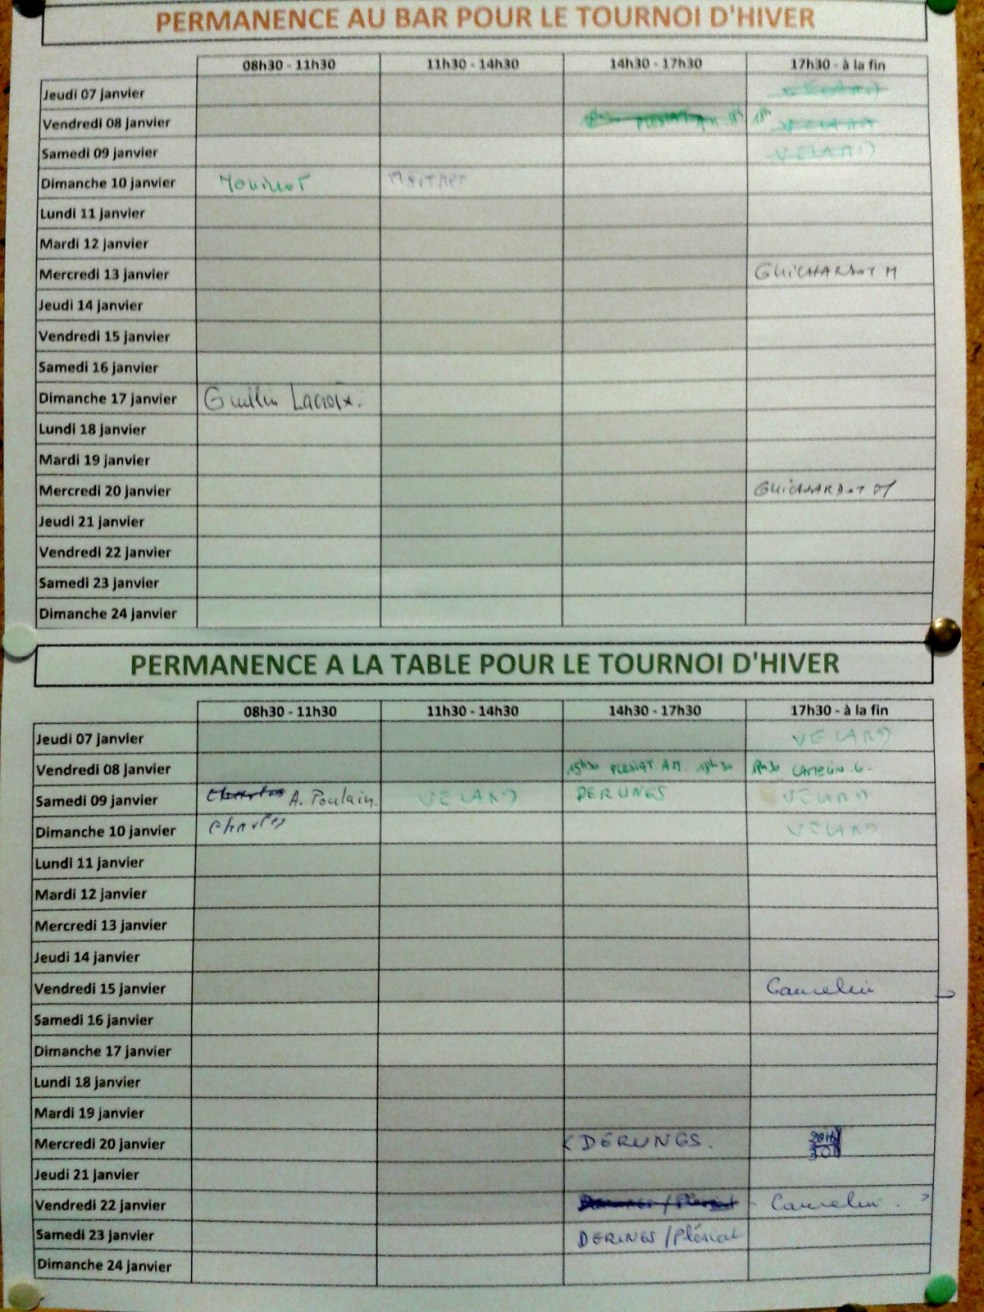 PERMANENCE AU BAR POUR LE TOURNOI D'HIVER
08h30 - 11h30 11h30 - 14h30 14h30 - 17h30 17h30 - à la fin
Jeudi 07 janvier VELARD
Vendredi 08 janvier PLENAT AM VELARD
Samedi 09 janvier VELARD
Dimanche 10 janvier
Lundi 11 janvier
Mardi 12 janvier
Mercredi 13 janvier GUICHARDOT M
Jeudi 14 janvier
Vendredi 15 janvier
Samedi 16 janvier
Dimanche 17 janvier Guillin Lacroix.
Lundi 18 janvier
Mardi 19 janvier
Mercredi 20 janvier GUICHARDOT M
Jeudi 21 janvier
Vendredi 22 janvier
Samedi 23 janvier
Dimanche 24 janvier
PERMANENCE A LA TABLE POUR LE TOURNOI D'HIVER
08h30 - 11h30 11h30 - 14h30 14h30 - 17h30 17h30 - à la fin
Jeudi 07 janvier VELARD
Vendredi 08 janvier 15h30 PLENAT AM 18h30
Samedi 09 janvier Charles A. Poulain VELARD DERUNGS VELARD
Dimanche 10 janvier Charles VELARD
Lundi 11 janvier
Mardi 12 janvier
Mercredi 13 janvier
Jeudi 14 janvier
Vendredi 15 janvier
Samedi 16 janvier
Dimanche 17 janvier
Lundi 18 janvier
Mardi 19 janvier
Mercredi 20 janvier DERUNGS.
Jeudi 21 janvier
Vendredi 22 janvier
Samedi 23 janvier DERUNGS / Plénat
Dimanche 24 janvier